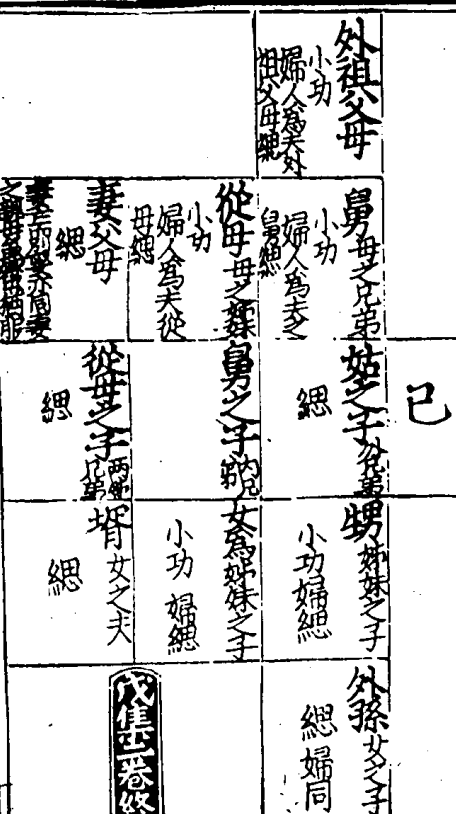 外祖父母
小功
婦人為夫外
祖父母緦
舅母之兄弟
小功
婦人為夫之
舅緦
從母母之姊妹
小功
婦人為夫從
母緦
妻父母
緦
己
姑之子外兄弟
緦
舅之子內兄弟
從母之子兩姨兄弟
緦
甥姊妹之子
小功婦緦
女為姊妹之子
小功 婦緦
壻女之夫
緦
外孫女之子
緦婦同
戊集上卷終